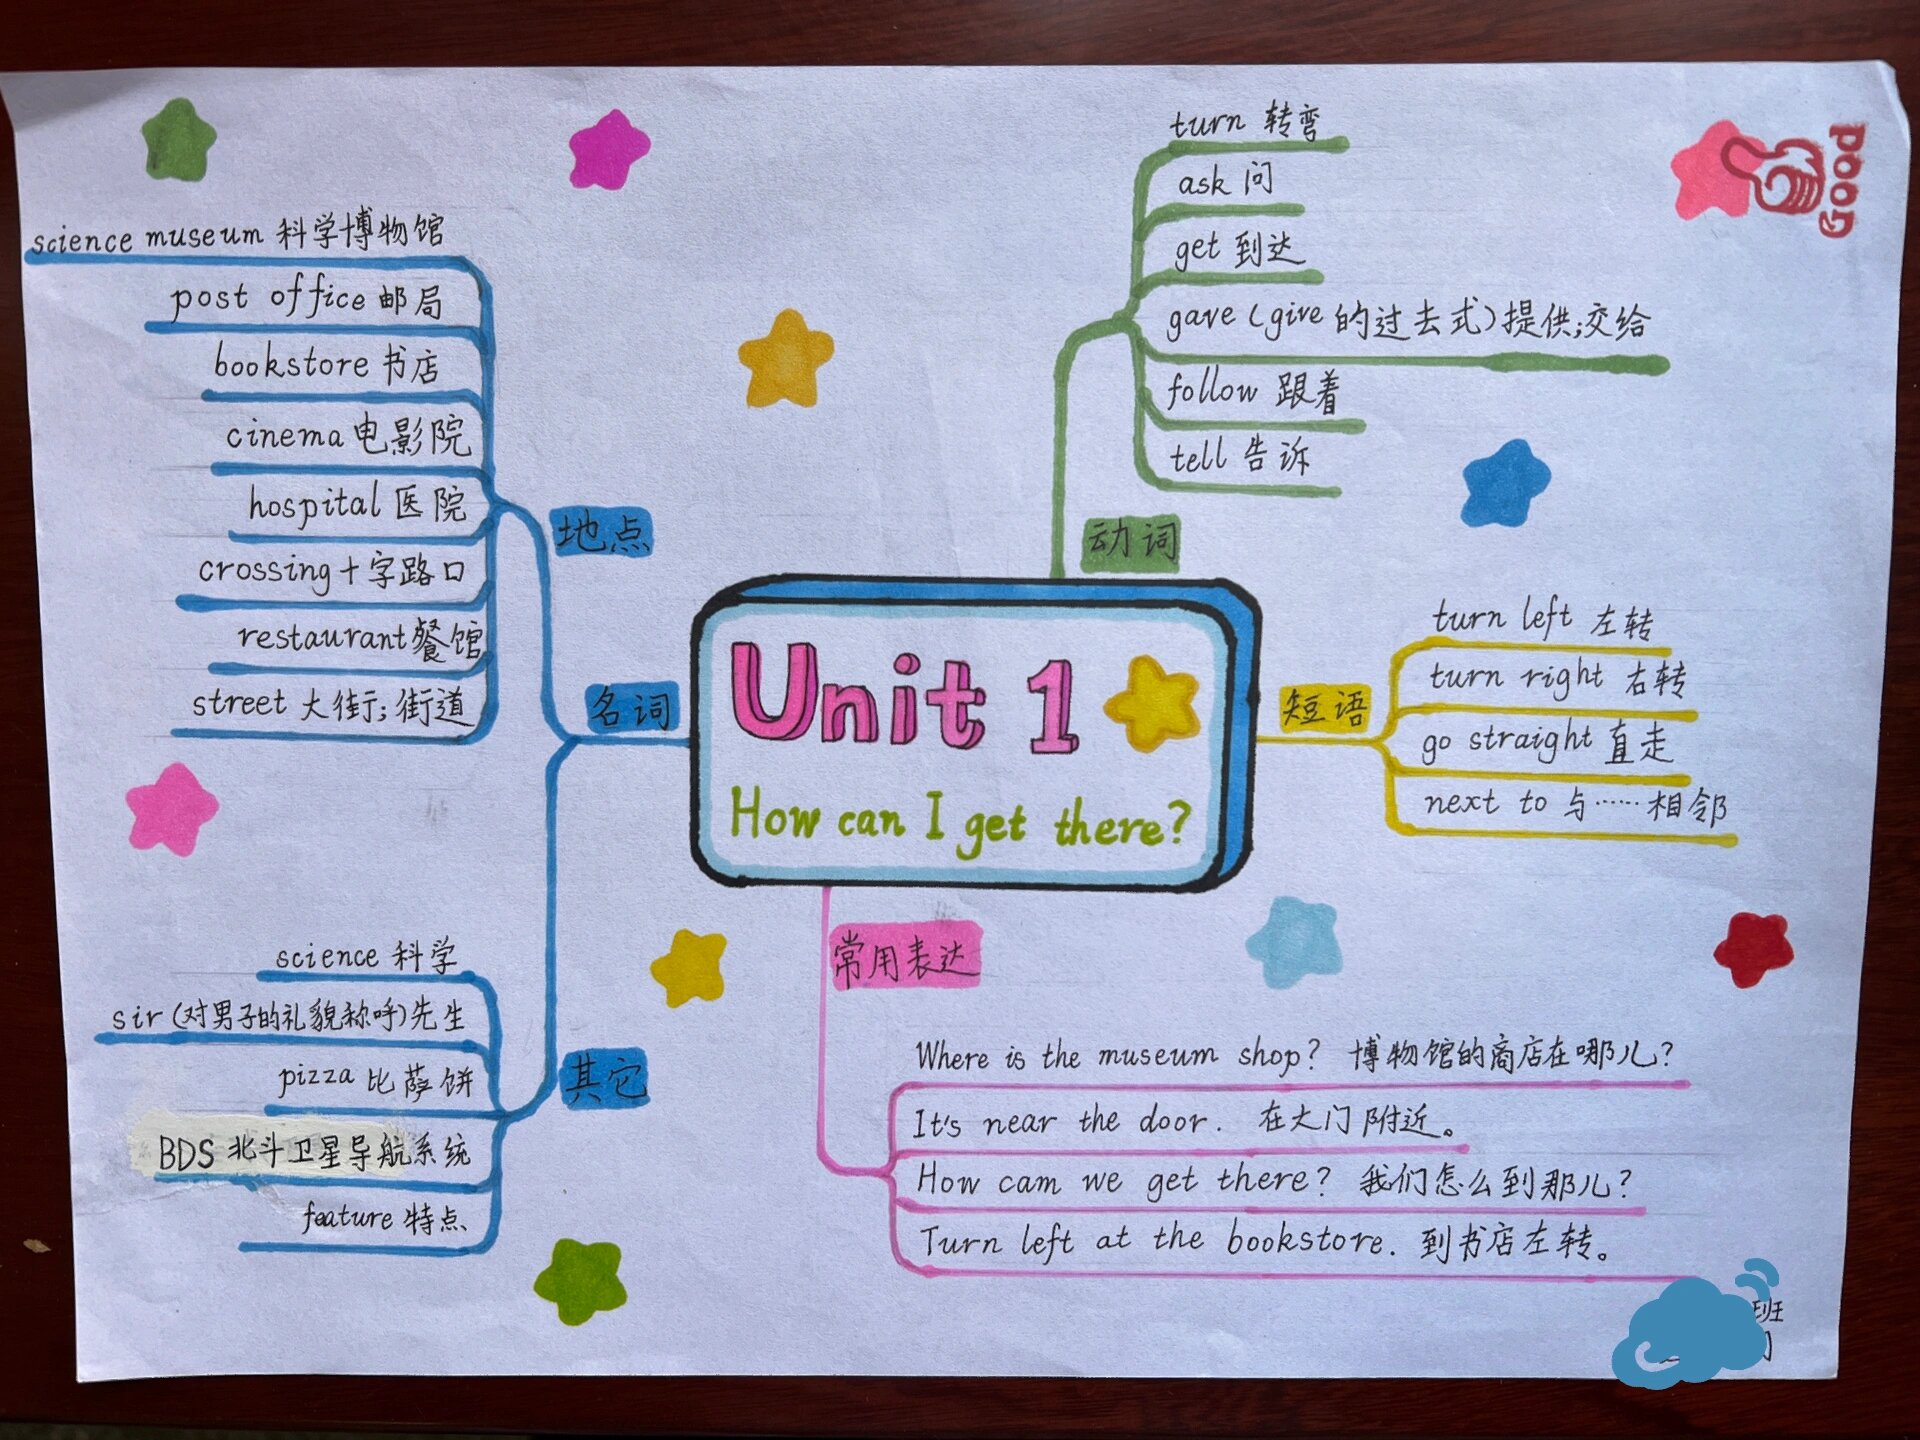 Good
science museum 科学博物馆
post office 邮局
bookstore 书店
cinema 电影院
hospital 医院
crossing 十字路口
restaurant 餐馆
street 大街;街道
地点
名词
science 科学
sir (对男子的礼貌称呼)先生
pizza 比萨饼
BDS 北斗卫星导航系统
feature 特点
其它
Unit 1
How can I get there?
turn 转弯
ask 问
get 到达
gave (give 的过去式) 提供;交给
follow 跟着
tell 告诉
动词
短语
turn left 左转
turn right 右转
go straight 直走
next to 与……相邻
常用表达
Where is the museum shop? 博物馆的商店在哪儿?
It's near the door. 在大门附近。
How cam we get there? 我们怎么到那儿?
Turn left at the bookstore. 到书店左转。
班